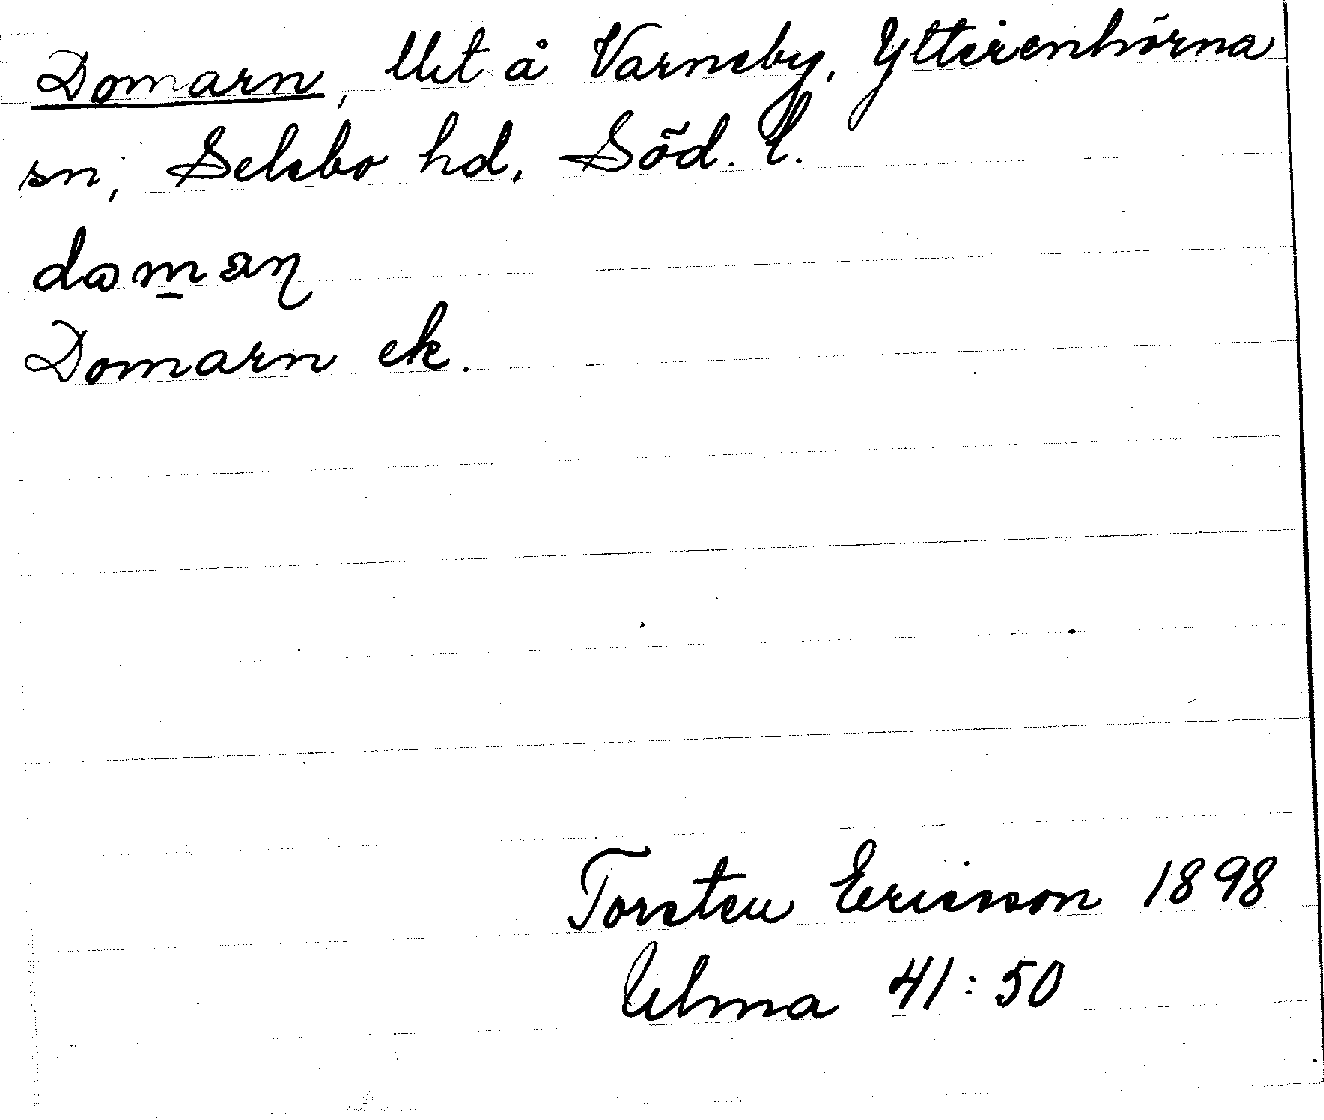 Domarn, Utj å Varnsby, Ytterenhörna
sn, Selebo hd, Söd. l.
domaṇ
Domarn ek.
Torsten Ericsson 1898
Ulma 41:50